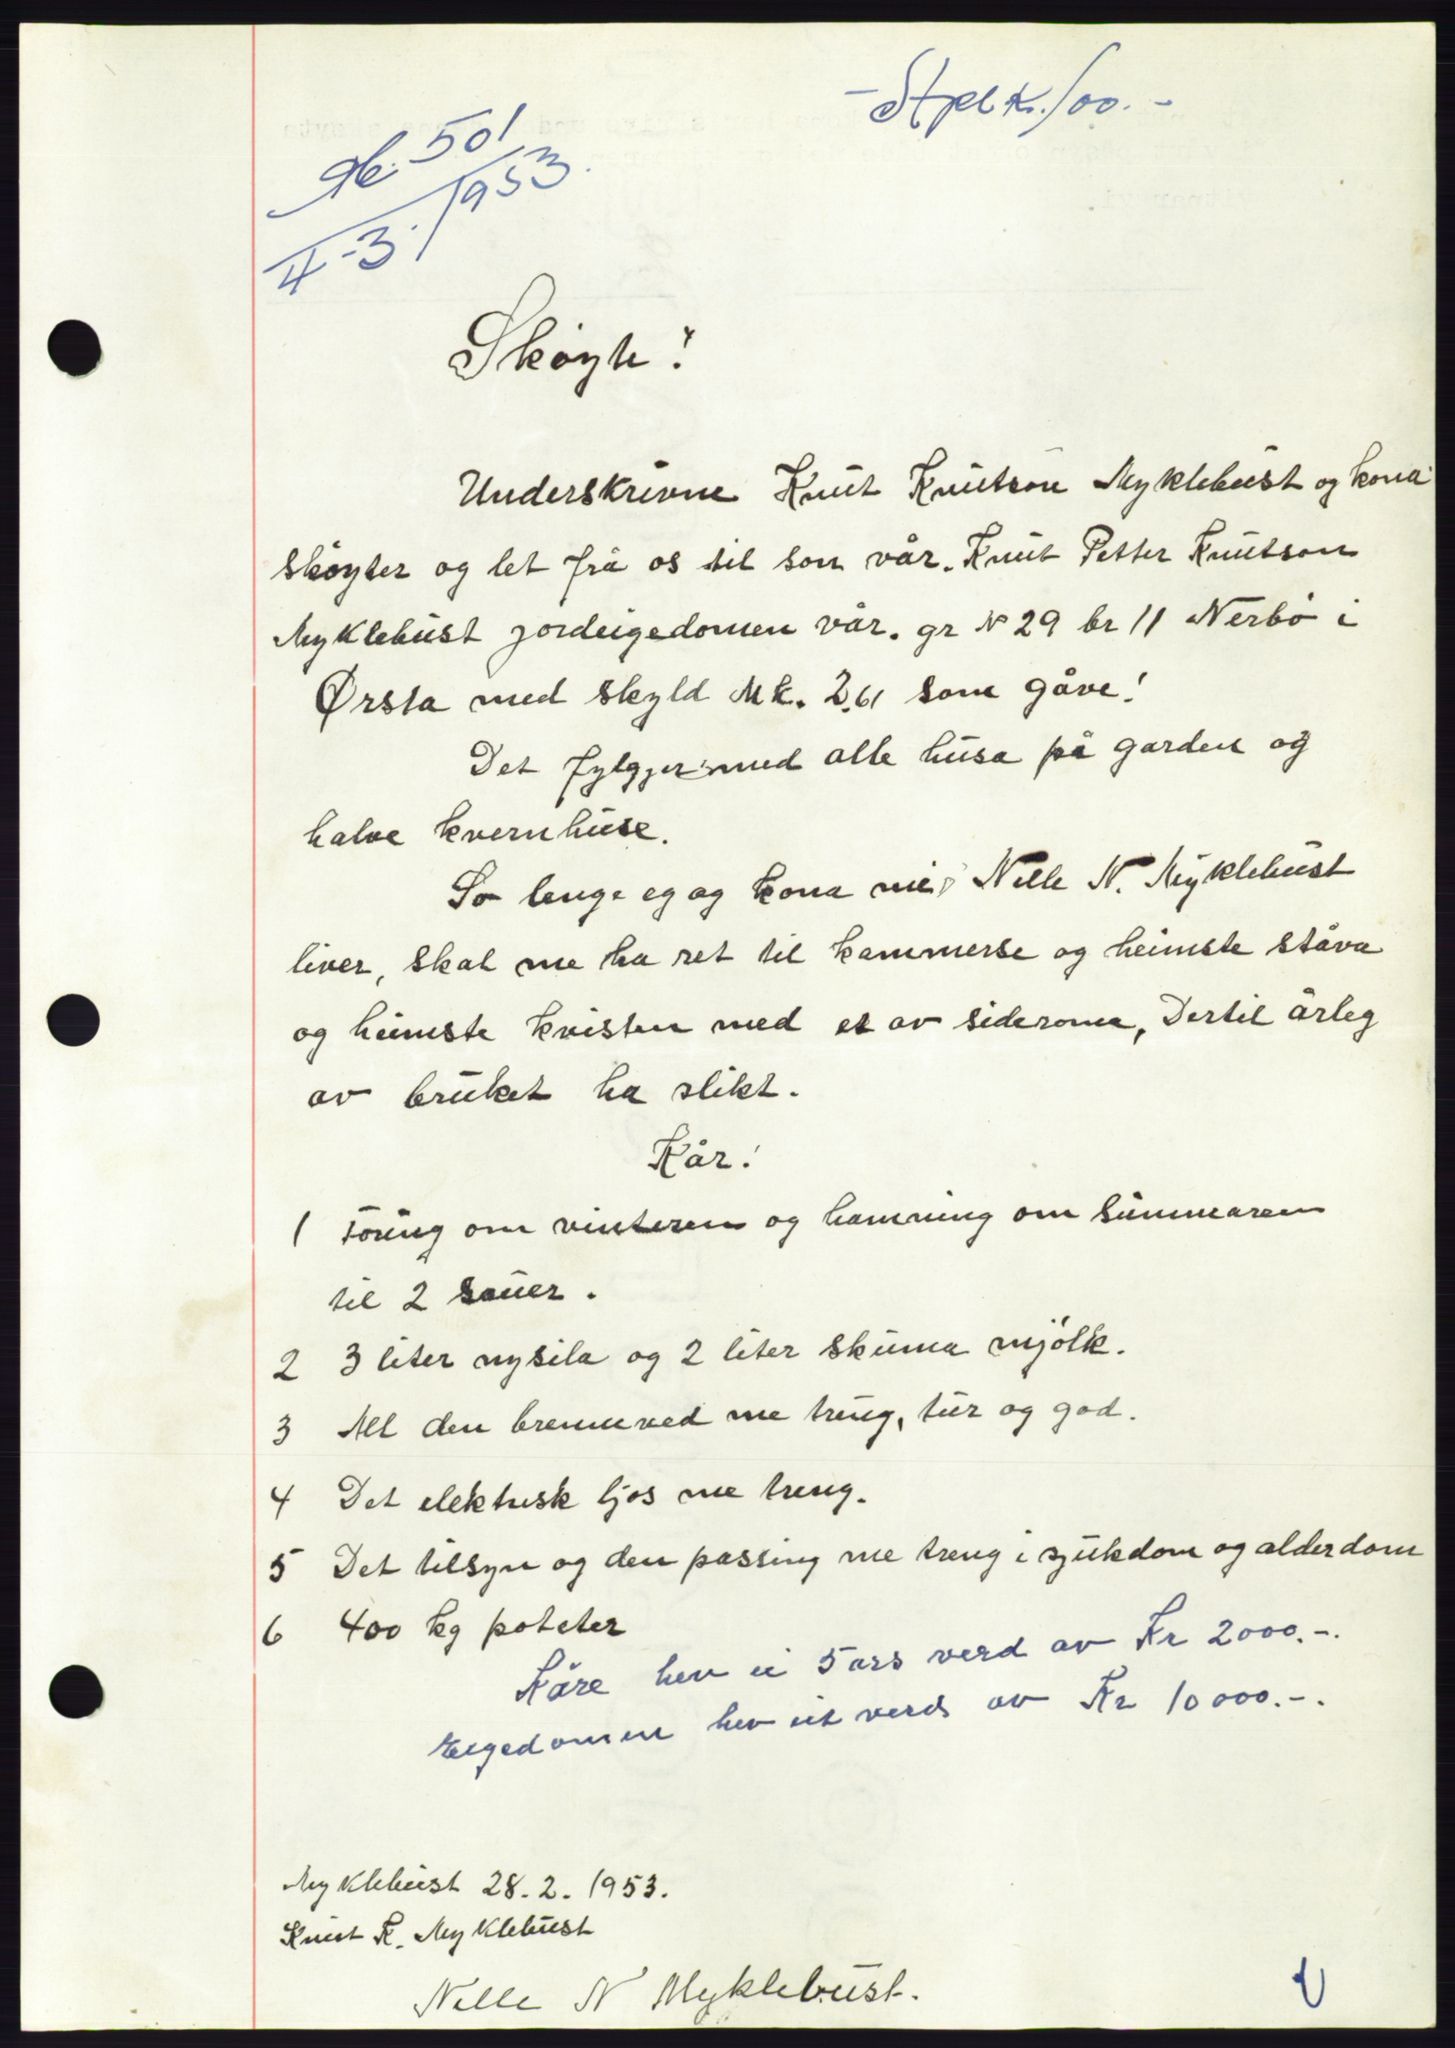 - Stpl k. 100. -
db. 501
4-3. 1953.
Skøyte!
Underskrivne Knut Knutson Myklebust og kona
skøyter og let frå os til son vår. Knut Petter Knutson
Myklebust jordeigedomen vår. gr N 29 br 11 Nerbø i
Ørsta med skyld Mk. 2,61 som gåve!
Det fylgjer med alle husa på garden og
halve kvernhuse.
So lenge eg og kona mi, Nelle N. Myklebust
liver, skal me ha ret til kammerse og heimste ståva
og heimste kvisten med et av sideroma, Dertil årleg
av bruket ha slikt.
Kår!
1 Foring om vinteren og hamning om summaren
til 2 sauer.
2 3 liter nysila og 2 liter skuma mjølk.
3 All den brenneved me treng, tur og god.
4 Det elektrisk ljos me treng.
5 Det tilsyn og den passing me treng i sjukdom og alderdom
6 400 kg poteter
Kåre hev ei 5 års verd av Kr 2000.-.
Eigedomen hev eit verd av Kr 10000.-.
Myklebust 28.2.1953.
Knut K. Myklebust
Nelle N Myklebust.